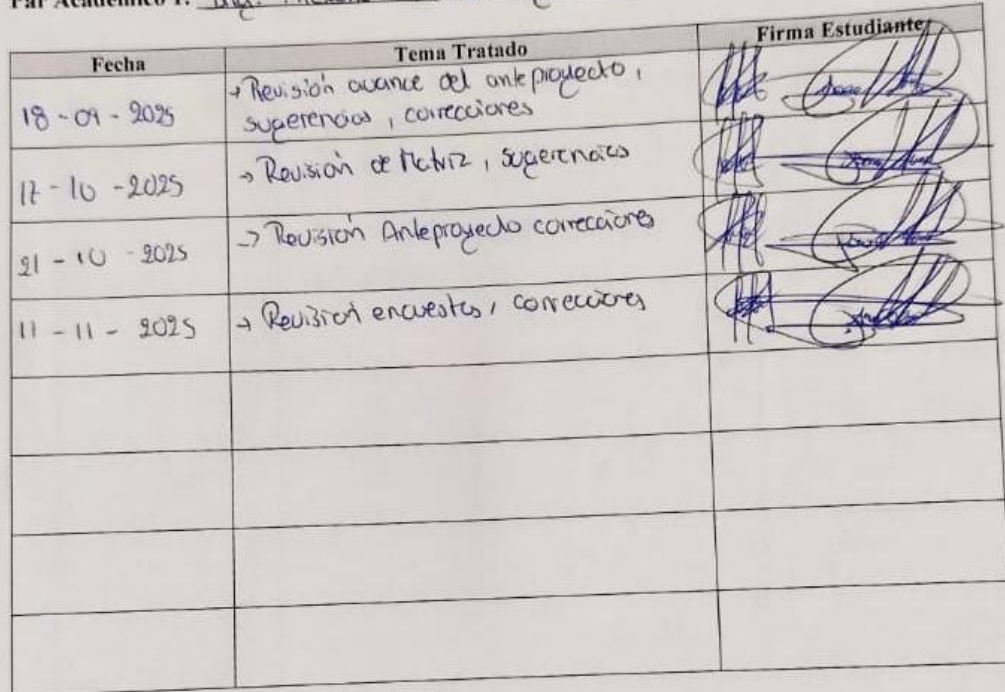 Par Académico 1: Ing.
Fecha Tema Tratado Firma Estudiante
18 - 09 - 2025 → Revisión avance del anteproyecto,
sugerencias, correcciones
17 - 10 - 2025 → Revisión de Matriz, sugerencias
21 - 10 - 2025 → Revisión Anteproyecto correcciones
11 - 11 - 2025 → Revisión encuestas, correcciones